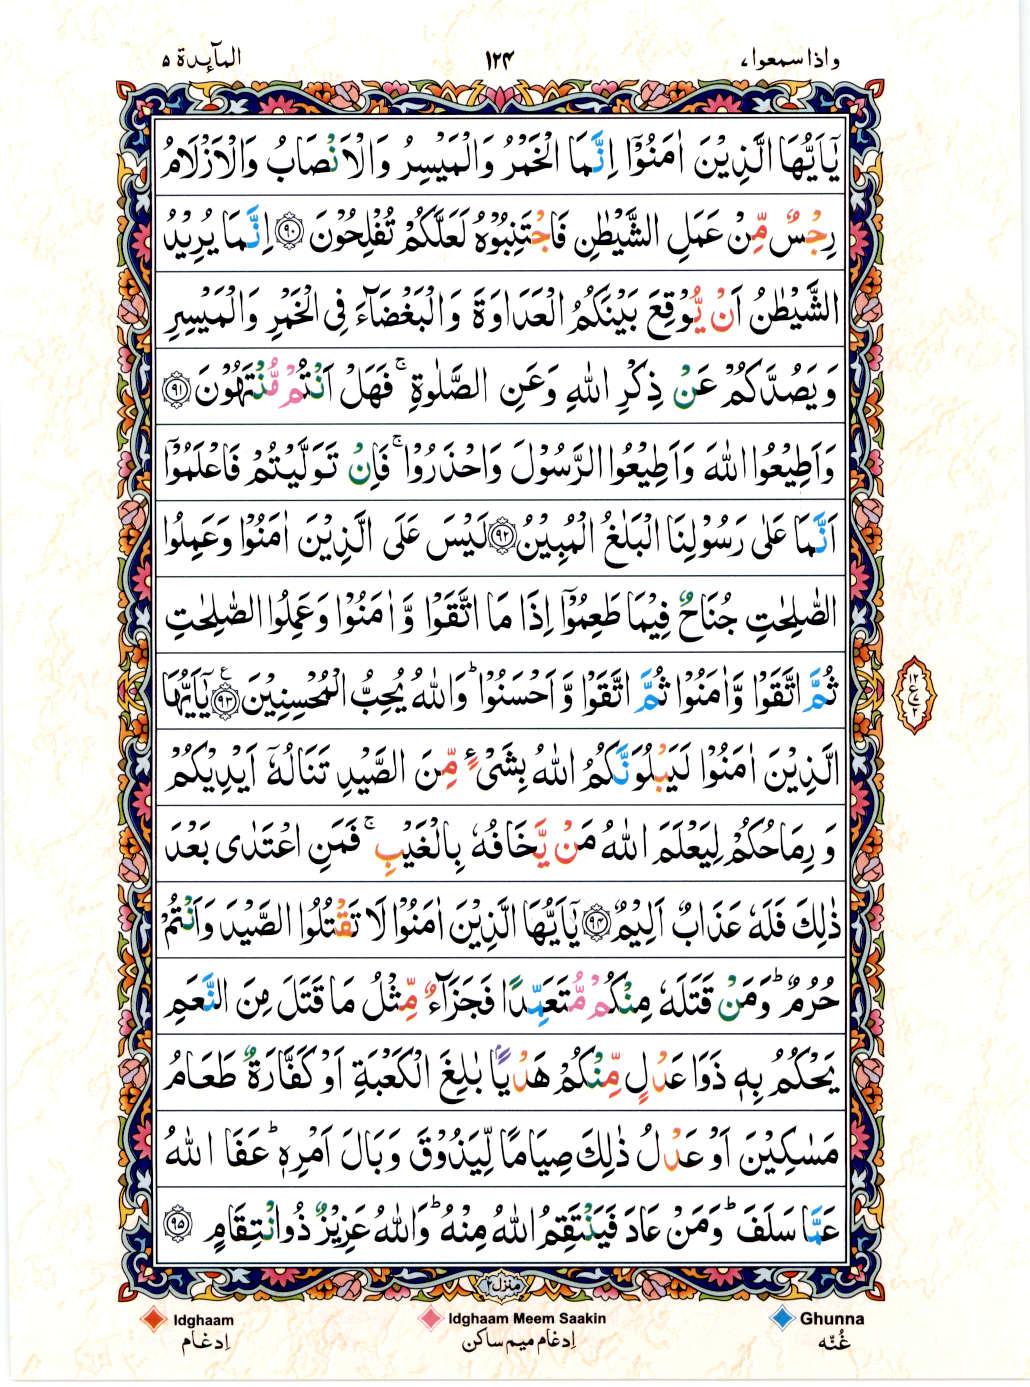 واذا سمعوا،
۱۲۴
المآىِٕدة ۵
يٰۤاَيُّهَا الَّذِيْنَ اٰمَنُوْۤا اِنَّمَا الْخَمْرُ وَالْمَيْسِرُ وَالْاَنْصَابُ وَالْاَزْلَامُ
رِجْسٌ مِّنْ عَمَلِ الشَّيْطٰنِ فَاجْتَنِبُوْهُ لَعَلَّكُمْ تُفْلِحُوْنَ ﴿۹۰﴾ اِنَّمَا يُرِيْدُ
الشَّيْطٰنُ اَنْ يُّوْقِعَ بَيْنَكُمُ الْعَدَاوَةَ وَالْبَغْضَآءَ فِى الْخَمْرِ وَالْمَيْسِرِ
وَيَصُدَّكُمْ عَنْ ذِكْرِ اللّٰهِ وَعَنِ الصَّلٰوةِ ۚ فَهَلْ اَنْتُمْ مُّنْتَهُوْنَ ﴿۹۱﴾
وَاَطِيْعُوا اللّٰهَ وَاَطِيْعُوا الرَّسُوْلَ وَاحْذَرُوْا ۚ فَاِنْ تَوَلَّيْتُمْ فَاعْلَمُوْۤا
اَنَّمَا عَلٰى رَسُوْلِنَا الْبَلٰغُ الْمُبِيْنُ ﴿۹۲﴾ لَيْسَ عَلَى الَّذِيْنَ اٰمَنُوْا وَعَمِلُوا
الصّٰلِحٰتِ جُنَاحٌ فِيْمَا طَعِمُوْۤا اِذَا مَا اتَّقَوْا وَّاٰمَنُوْا وَعَمِلُوا الصّٰلِحٰتِ
ثُمَّ اتَّقَوْا وَّاٰمَنُوْا ثُمَّ اتَّقَوْا وَّاَحْسَنُوْا ؕ وَاللّٰهُ يُحِبُّ الْمُحْسِنِيْنَ ﴿۹۳﴾ ع يٰۤاَيُّهَا
الَّذِيْنَ اٰمَنُوْا لَيَبْلُوَنَّكُمُ اللّٰهُ بِشَىْءٍ مِّنَ الصَّيْدِ تَنَالُهٗۤ اَيْدِيْكُمْ
وَرِمَاحُكُمْ لِيَعْلَمَ اللّٰهُ مَنْ يَّخَافُهٗ بِالْغَيْبِ ۚ فَمَنِ اعْتَدٰى بَعْدَ
ذٰلِكَ فَلَهٗ عَذَابٌ اَلِيْمٌ ﴿۹۴﴾ يٰۤاَيُّهَا الَّذِيْنَ اٰمَنُوْا لَا تَقْتُلُوا الصَّيْدَ وَاَنْتُمْ
حُرُمٌ ؕ وَمَنْ قَتَلَهٗ مِنْكُمْ مُّتَعَمِّدًا فَجَزَآءٌ مِّثْلُ مَا قَتَلَ مِنَ النَّعَمِ
يَحْكُمُ بِهٖ ذَوَا عَدْلٍ مِّنْكُمْ هَدْيًۢا بٰلِغَ الْكَعْبَةِ اَوْ كَفَّارَةٌ طَعَامُ
مَسٰكِيْنَ اَوْ عَدْلُ ذٰلِكَ صِيَامًا لِّيَذُوْقَ وَبَالَ اَمْرِهٖ ؕ عَفَا اللّٰهُ
عَمَّا سَلَفَ ؕ وَمَنْ عَادَ فَيَنْتَقِمُ اللّٰهُ مِنْهُ ؕ وَاللّٰهُ عَزِيْزٌ ذُو انْتِقَامٍ ﴿۹۵﴾
منزل ۲
Ghunna
غُنّه
Idghaam Meem Saakin
اِدغام میم ساکن
Idghaam
اِدغام